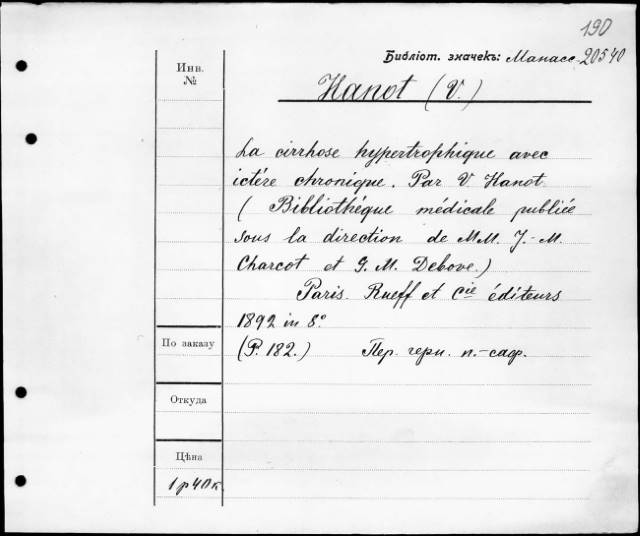 190
Библіот. значекъ: Манасс. 20540
Инв.
№
Hanot (V.)
La cirrhose hypertrophique avec
ictére chronique. Par V. Hanot.
(Bibliothéque médicale publiée
sous la direction de MM. J.-M.
Charcot et G. M. Debove.)
Paris. Rueff et Cie éditeurs
1892 in 8°.
(P. 182.) Пер. черн. п.-саф.
По заказу
Откуда
Цѣна
1 р 40 к.